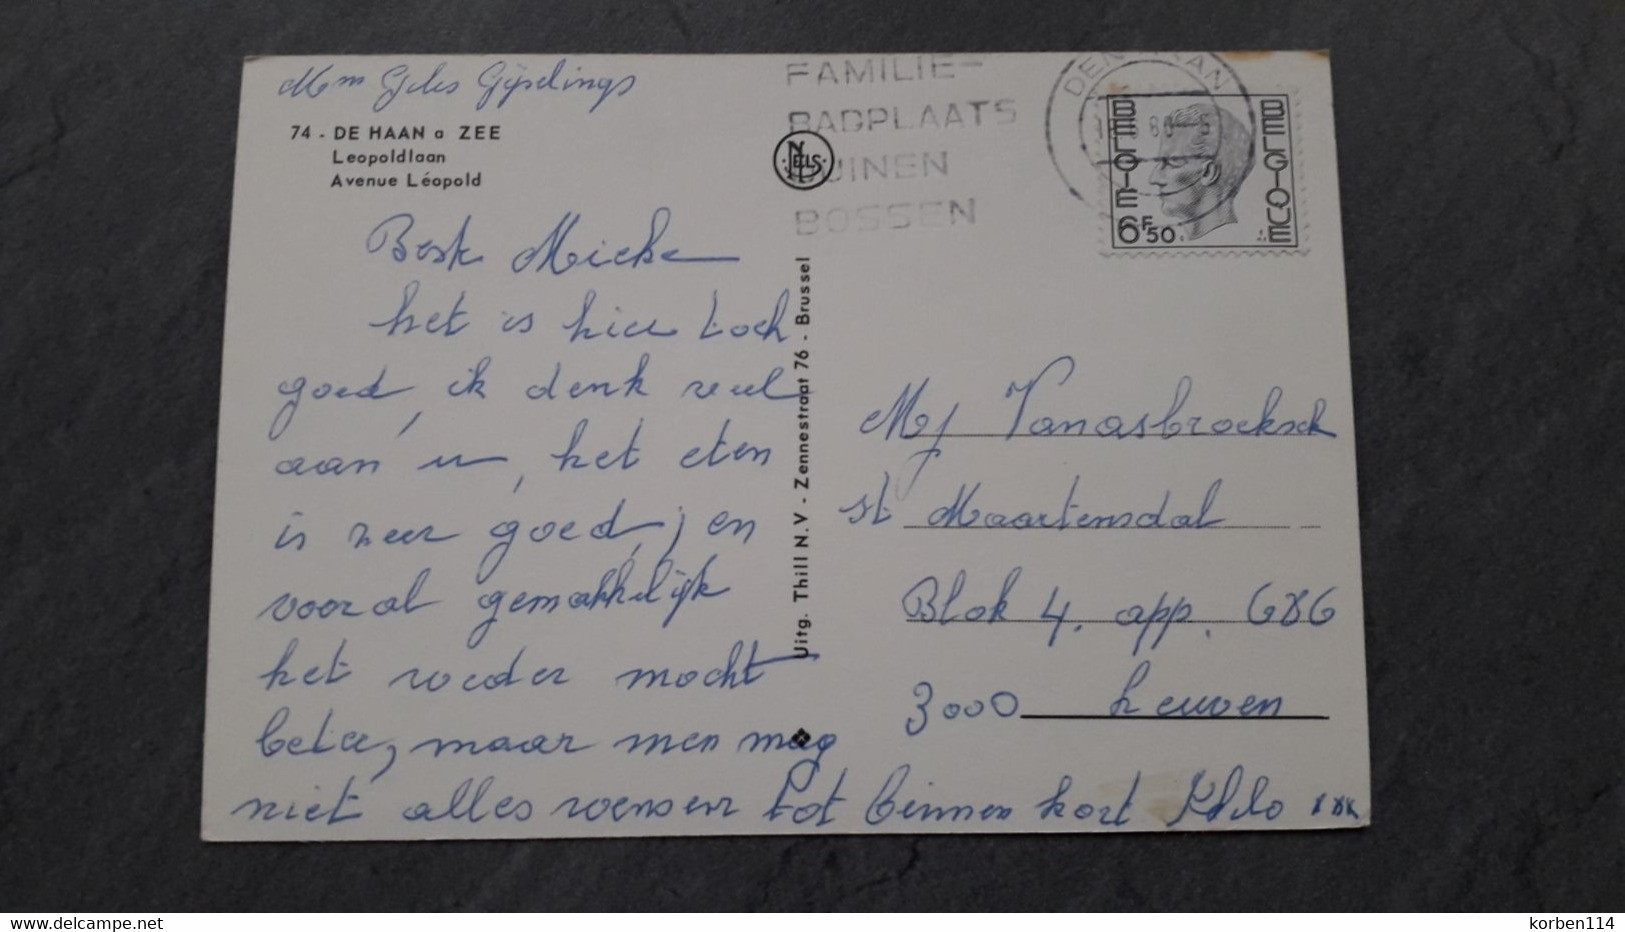 Mm Gijselings
74 - DE HAAN a ZEE
Leopoldlaan
Avenue Léopold
Beste Mieke
het is hier toch
goed, ik denk veel
aan u, het eten
is zeer goed, en
vooral gemakkelijk
het weder mocht
beter, maar men mag
niet alles wensen tot binnen kort
NELS
Uitg. Thill N.V - Zennestraat 76 - Brussel
FAMILIE-
BADPLAATS
DUINEN
BOSSEN
DEN HAAN
BELGIE
BELGIQUE
6F50
Mj Vanasbroeksck
St Maartensdal
Blok 4. app. 686
3000 Leuven
www.delcampe.net
korben114